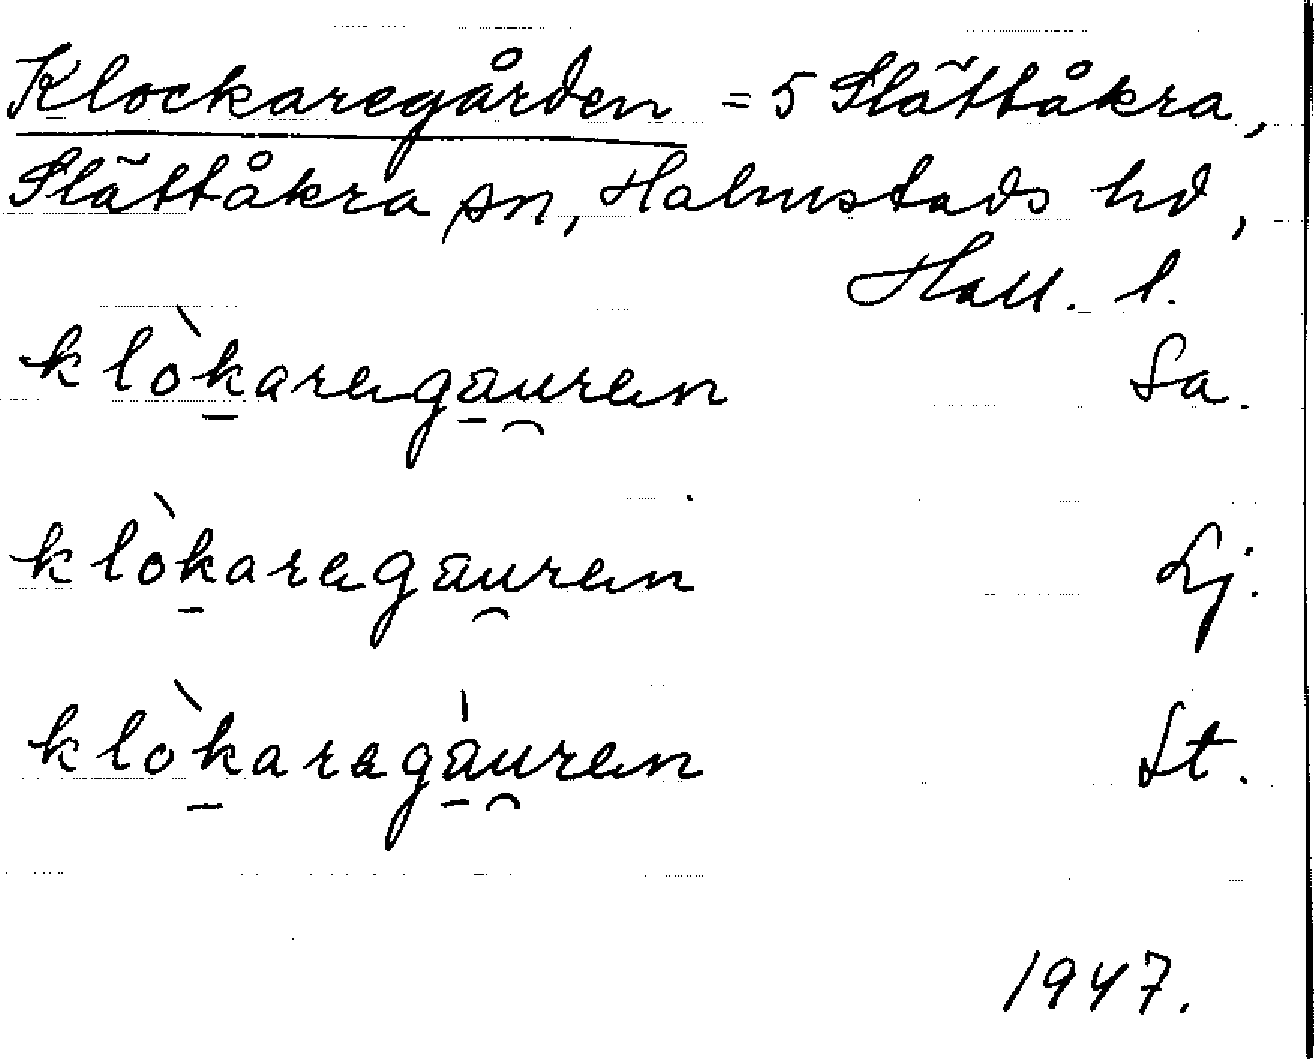 Klockaregården = 5 Slättåkra,
Slättåkra sn, Halmstads hd,
Hall. l.
klòk̠arega̠u̯ren Sa.
klòk̠aregau̯ren Lj.
klòk̠arega̠̍u̯ren St.
1947.